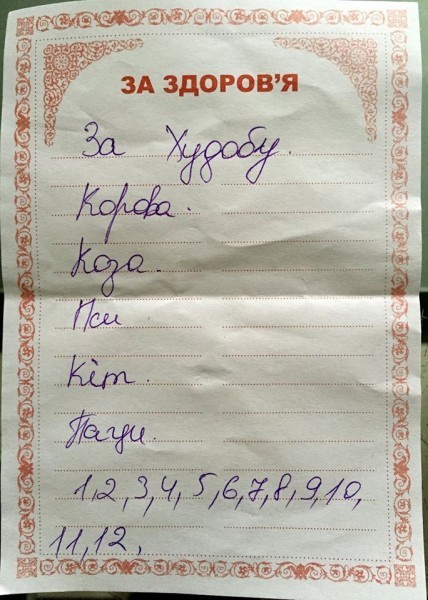 ЗА ЗДОРОВ'Я
За Худобу.
Корова.
Коза.
Пси
Кіт.
Паци.
1,2,3,4,5,6,7,8,9,10,
11,12,